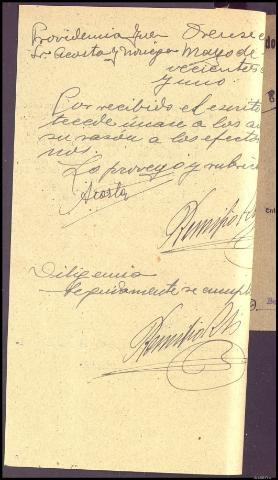 Providencia Juez Orense
Sr. Acosta y Noriega Mayo de
vecientos
y uno.
Por recibido el escrito
tecede únase a los au
su razón a los efectos
nos.
Lo proveyo y rubrica
Acosta
Remigio
Diligencia
Seguidamente se cumpl
Remigio